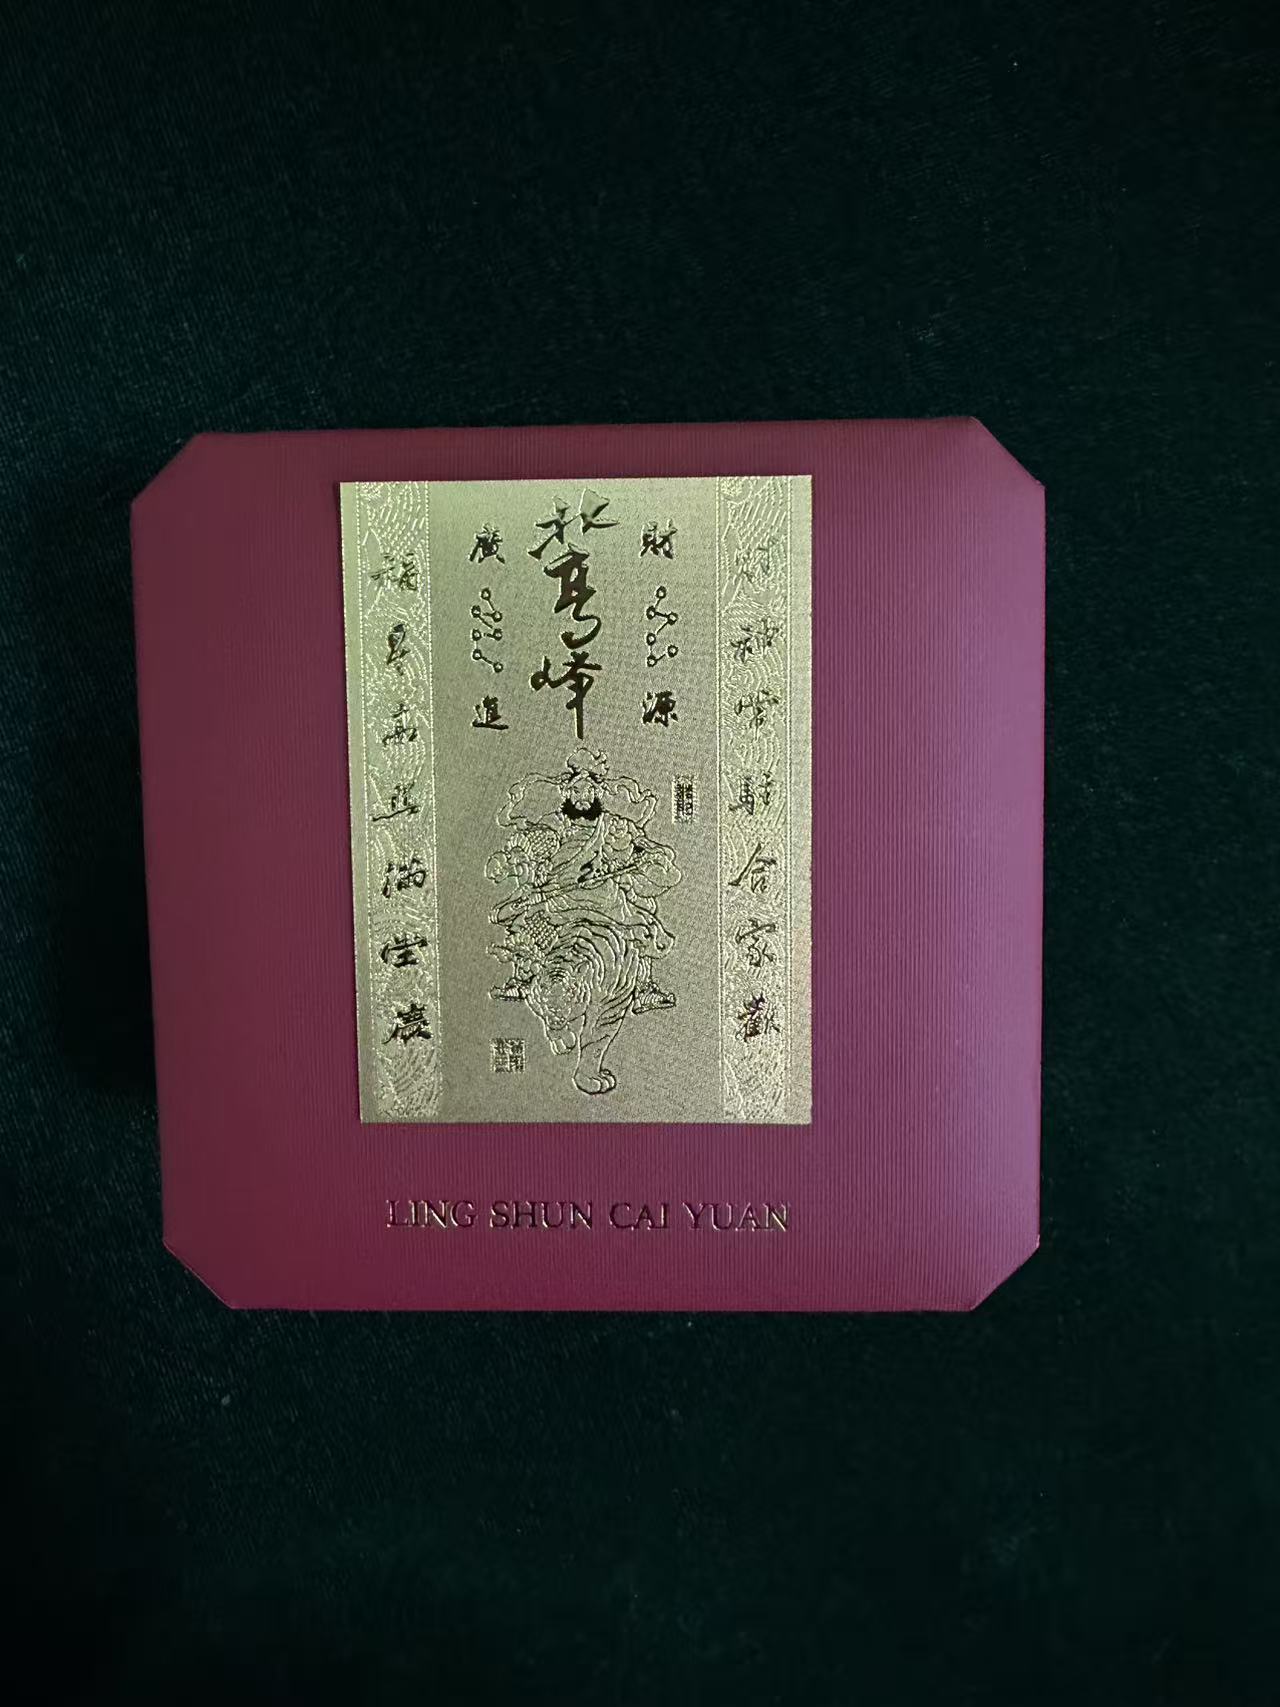 財神常駐合家歡
財源
廣進
福星高照滿堂慶
LING SHUN CAI YUAN